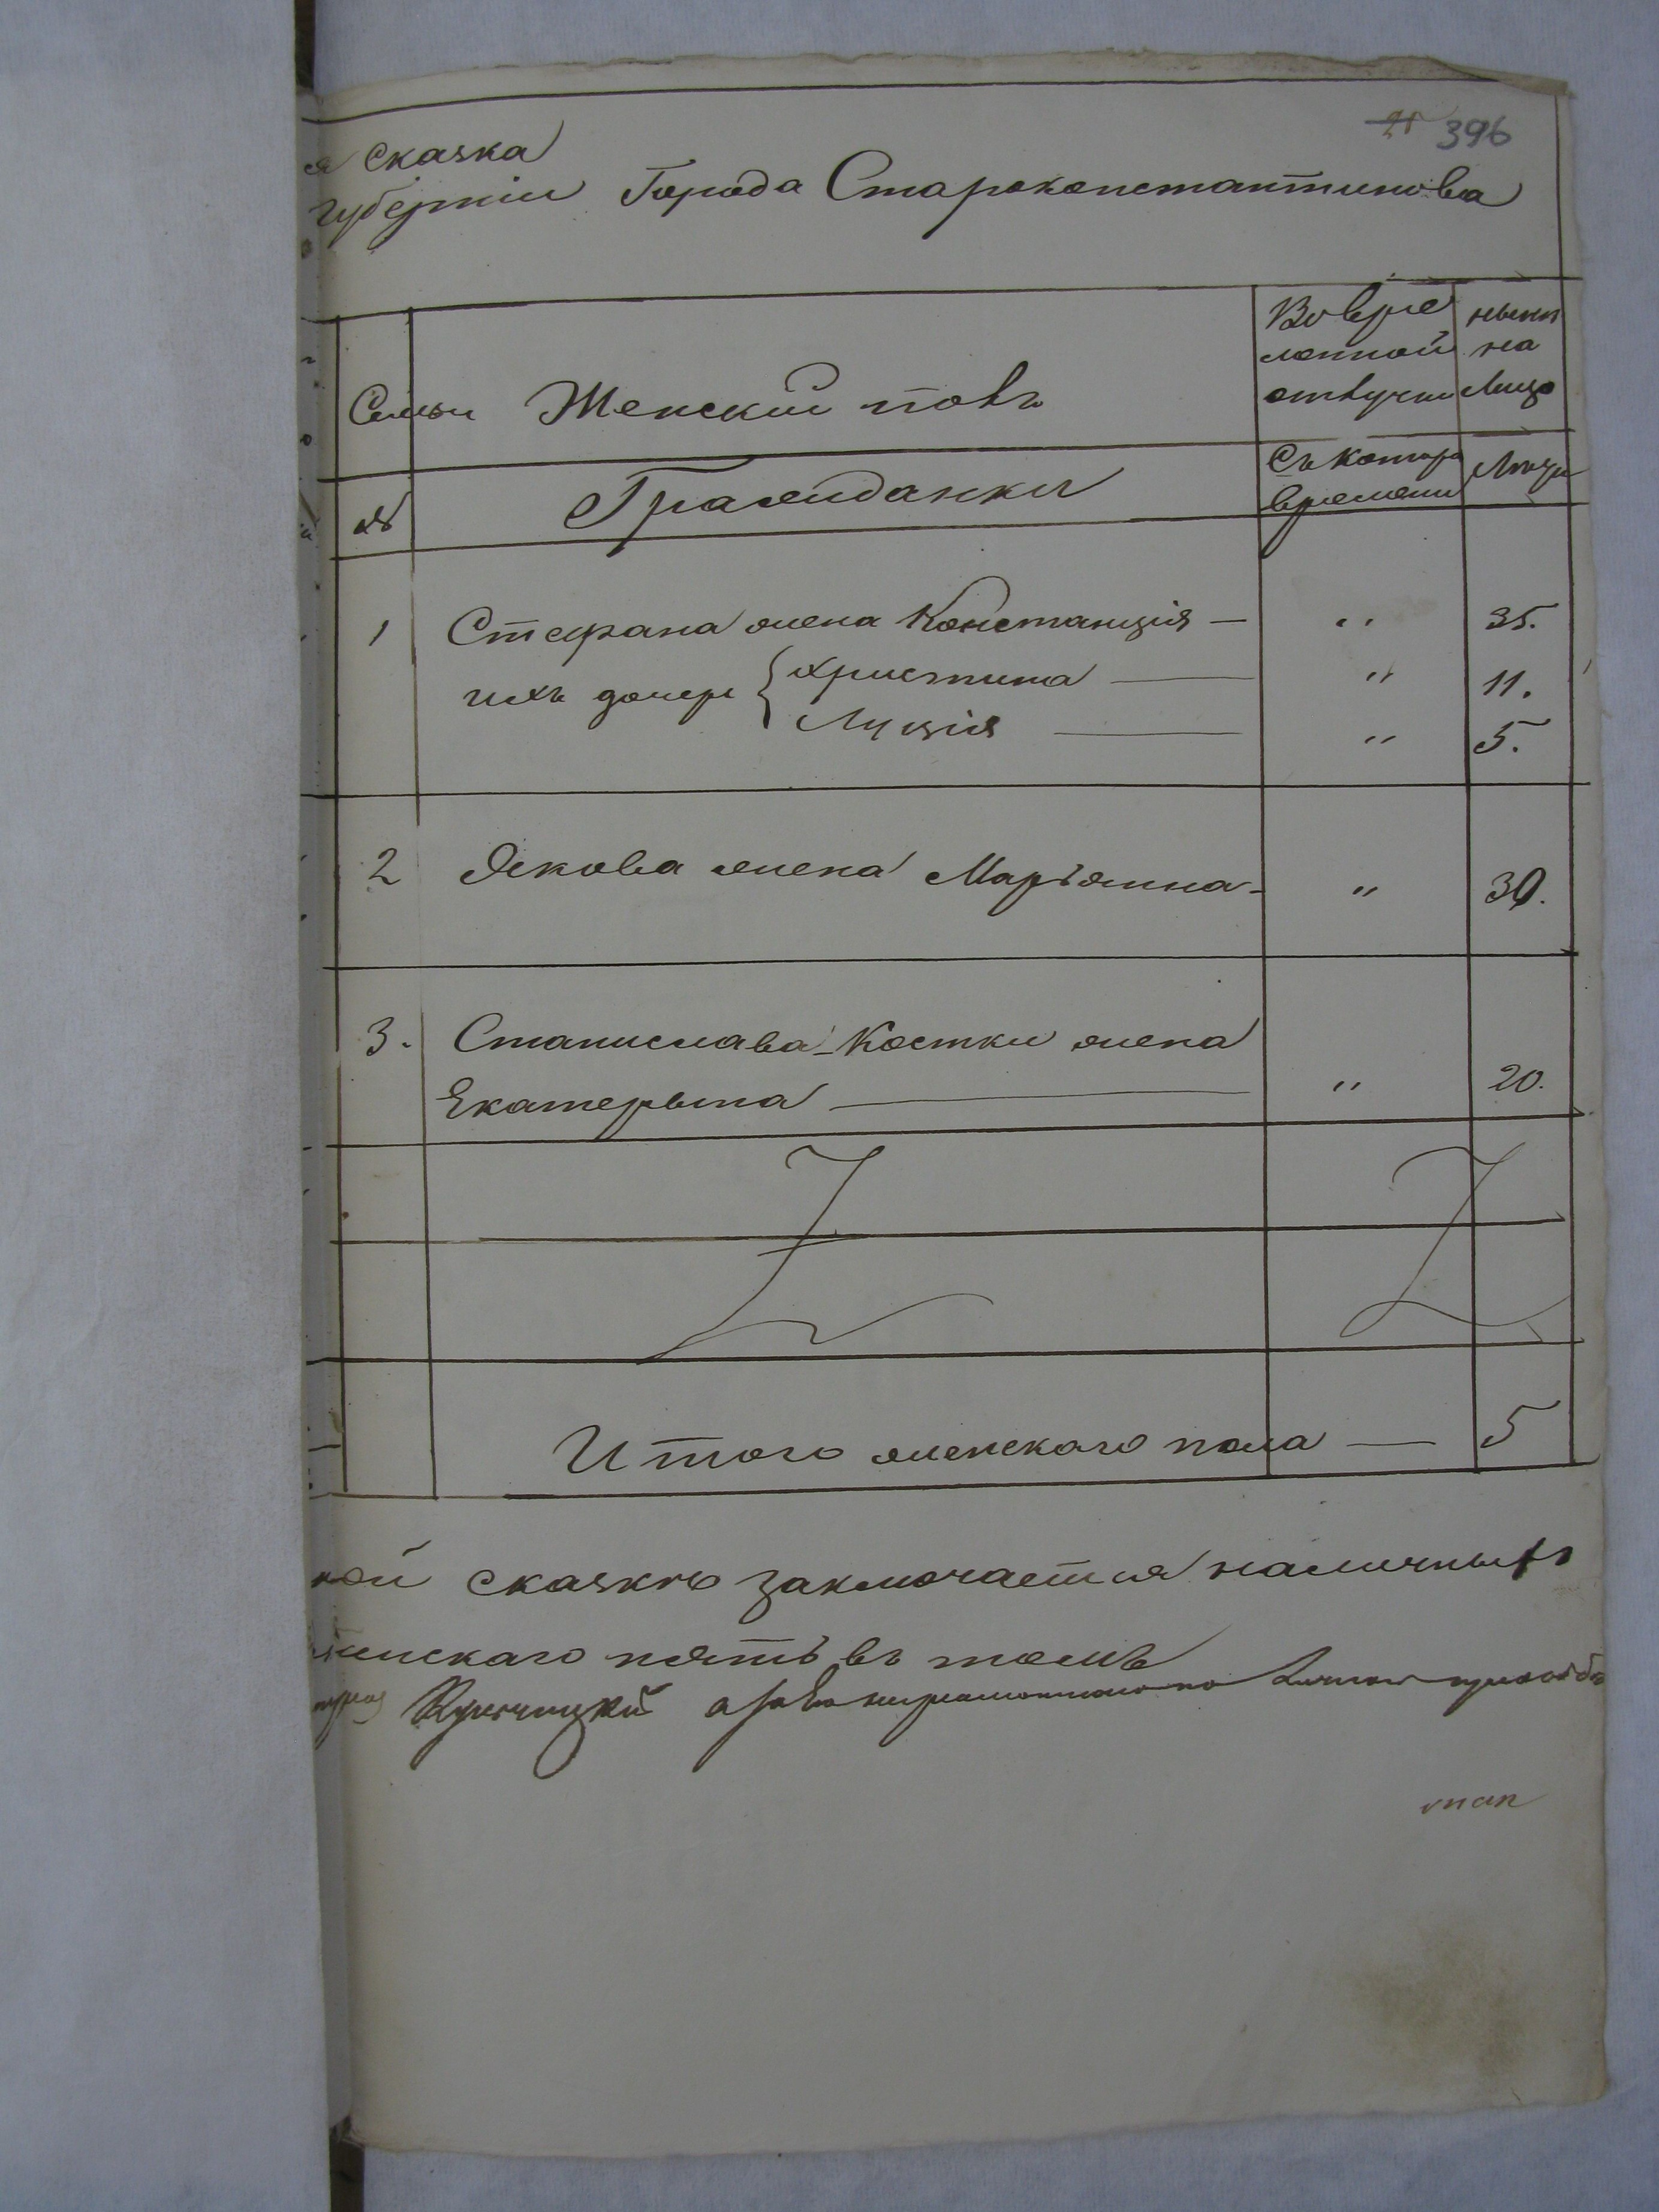 396
я Сказка
губерніи Города Староконстантинова
Семьи Женскій полъ
Во вре
менной
отлучки
нынѣ
на
Лицо
№ Гражданки
Съ котора
времени
Лѣта
1 Стефана жена Констанція — " 35.
ихъ дочери { Христина — " 11.
Луція — " 5.
2 Якова жена Марьянна - " 30.
3. Станислава-Костки жена
Екатерына — " 20.
Итого женскаго пола — 5
ной сказкѣ заключается наличныхъ
женскаго пять въ томъ